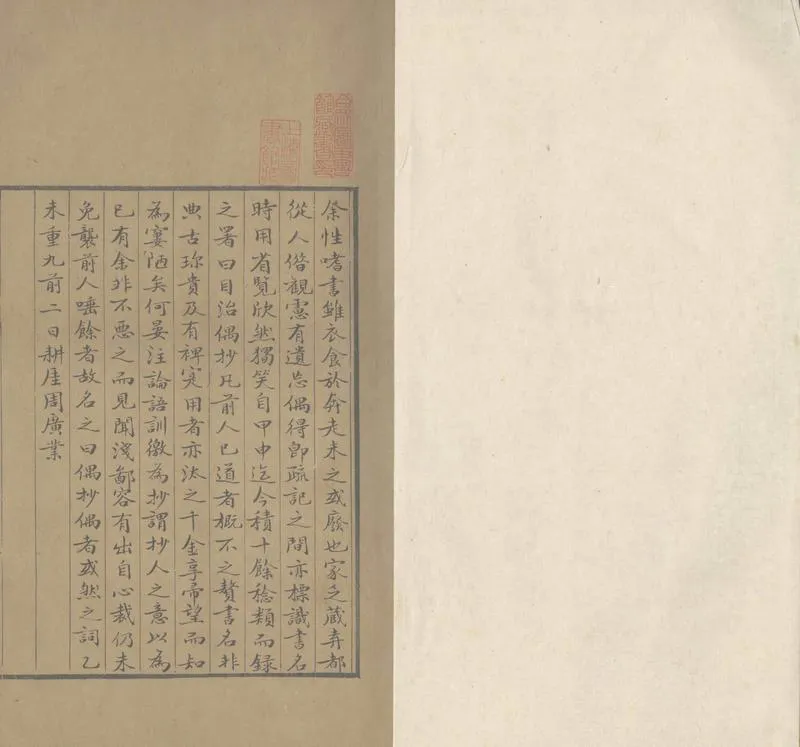 余性嗜書雖衣食於奔走未之或廢也家乏藏弆都
從人借觀慮有遺忘偶得即疏記之間亦標識書名
時用省覽欣然獨笑自甲申迄今積十餘稔類而錄
之署曰目治偶抄凡前人已道者概不之贅書名非
典古珍貴及有裨寔用者亦汰之千金享帚望而知
為寠陋矣何晏注論語訓徼為抄謂抄人之意以為
已有余非不惡之而見聞淺鄙容有出自心裁仍未
免襲前人唾餘者故名之曰偶抄偶者或然之詞乙
未重九前二日耕厓周廣業